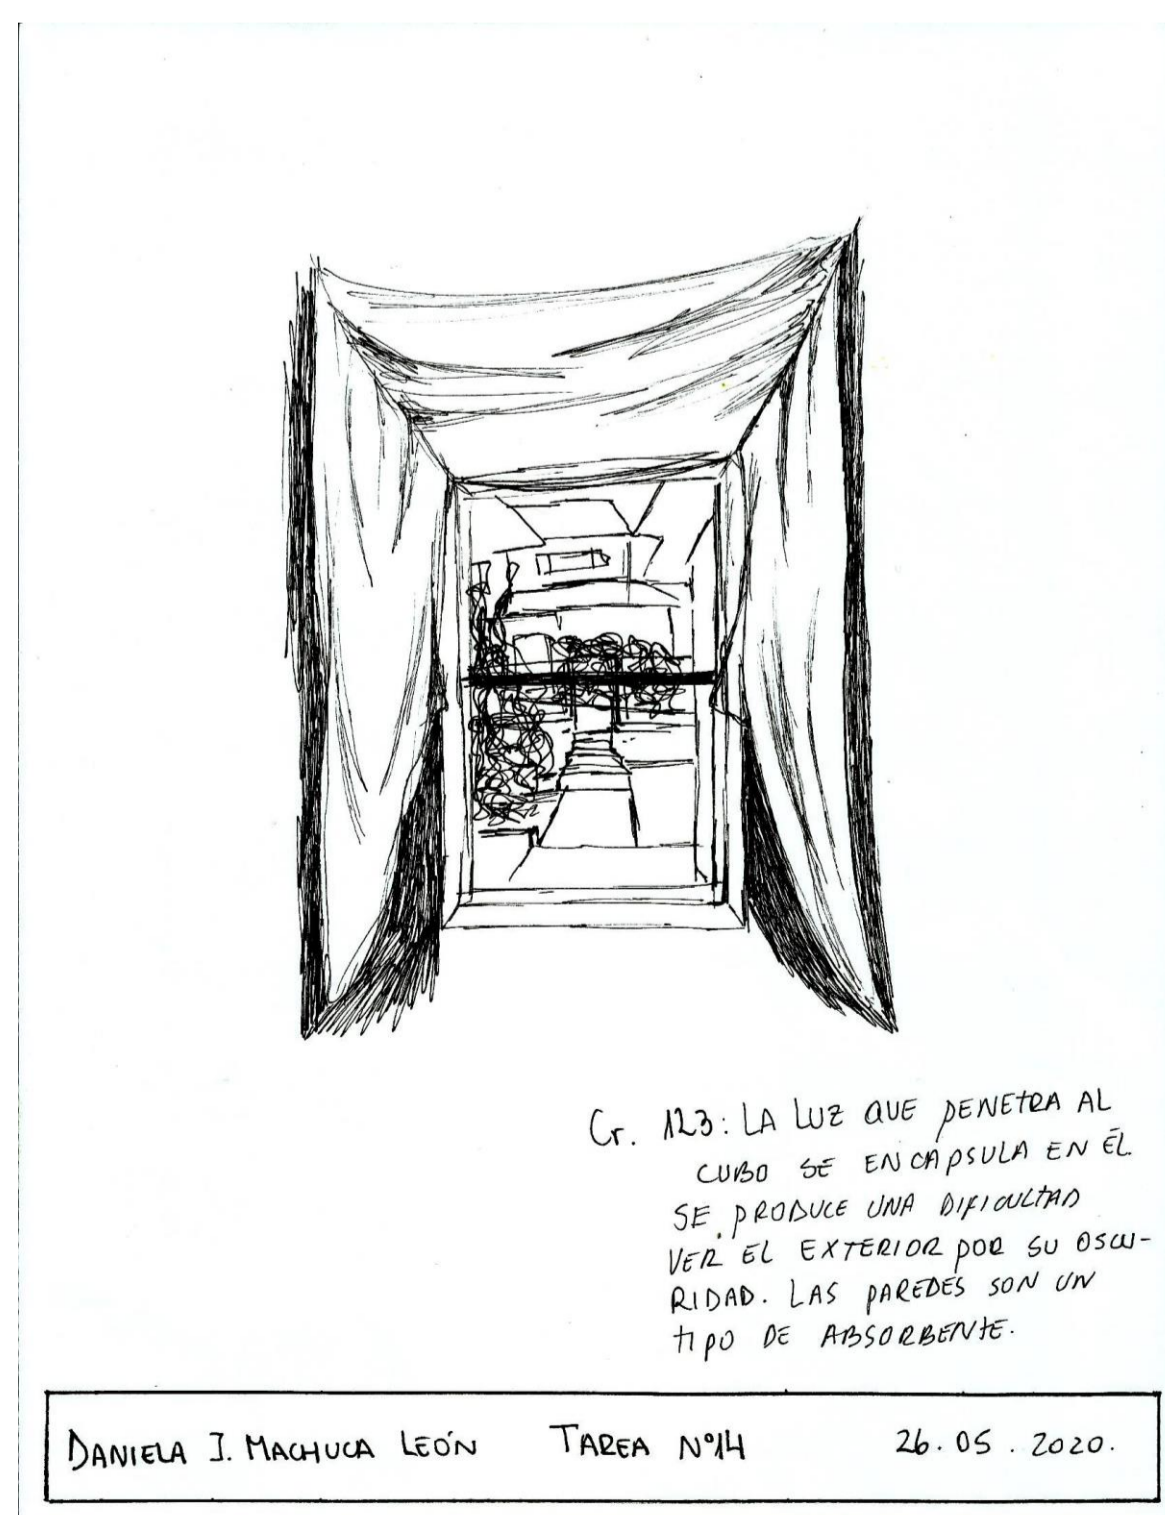 Cr. 123: LA LUZ QUE PENETRA AL
CUBO SE ENCÁPSULA EN ÉL.
SE PRODUCE UNA DIFICULTAD
VER EL EXTERIOR POR SU OSCU-
RIDAD. LAS PAREDES SON UN
TIPO DE ABSORBENTE.
DANIELA I. MACHUCA LEÓN TAREA Nº14 26.05.2020.